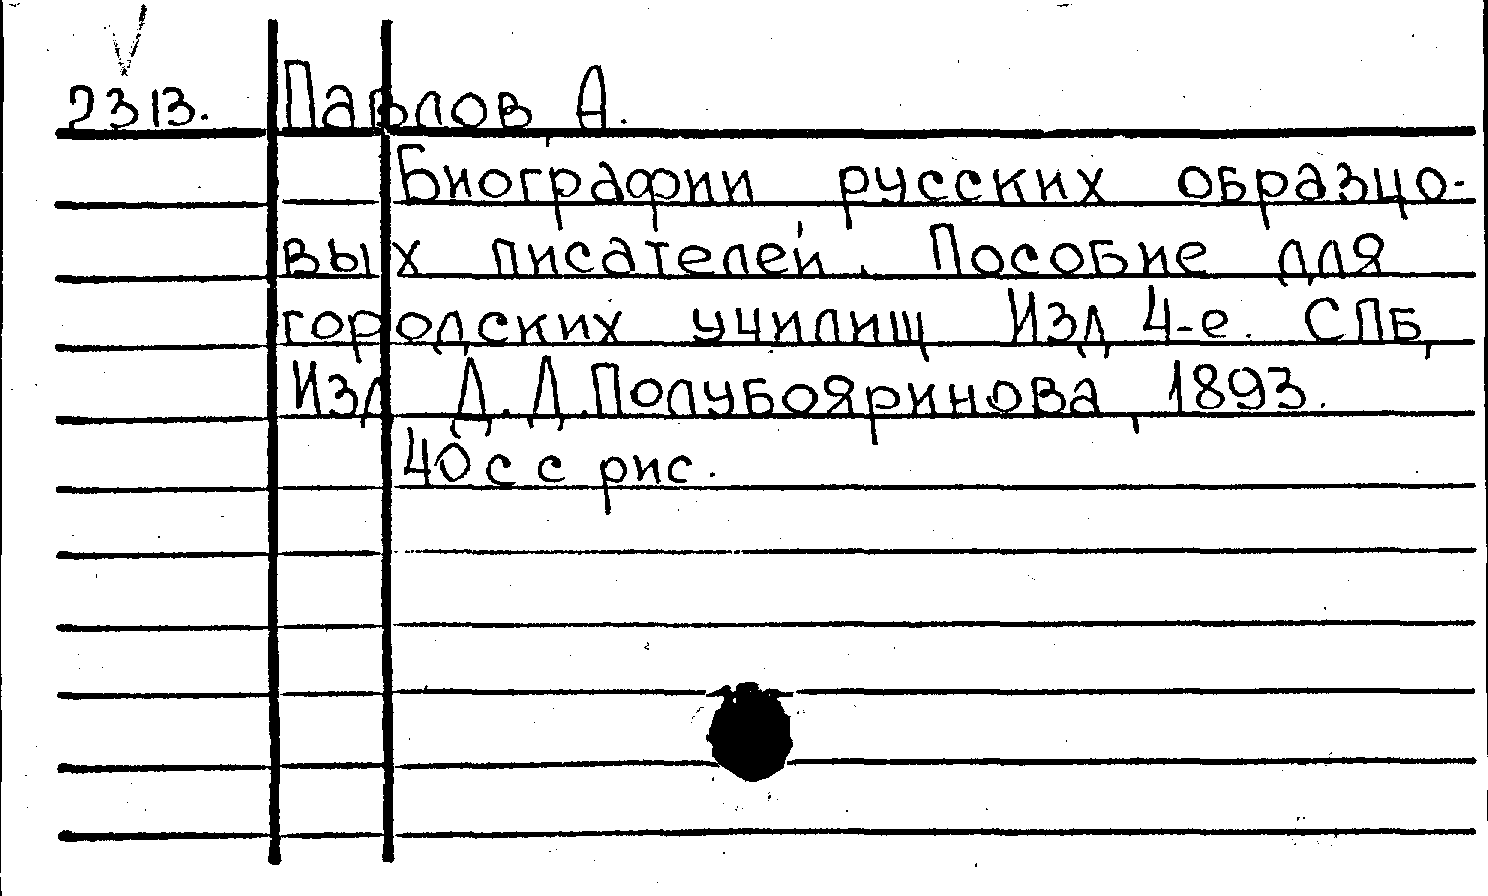 2313. Павлов А.
Биографии русских образцо-
вых писателей. Пособие для
городских училищ Изд 4-е. СПБ,
Изд Д.Д.Полубояринова, 1893.
40 с с рис.